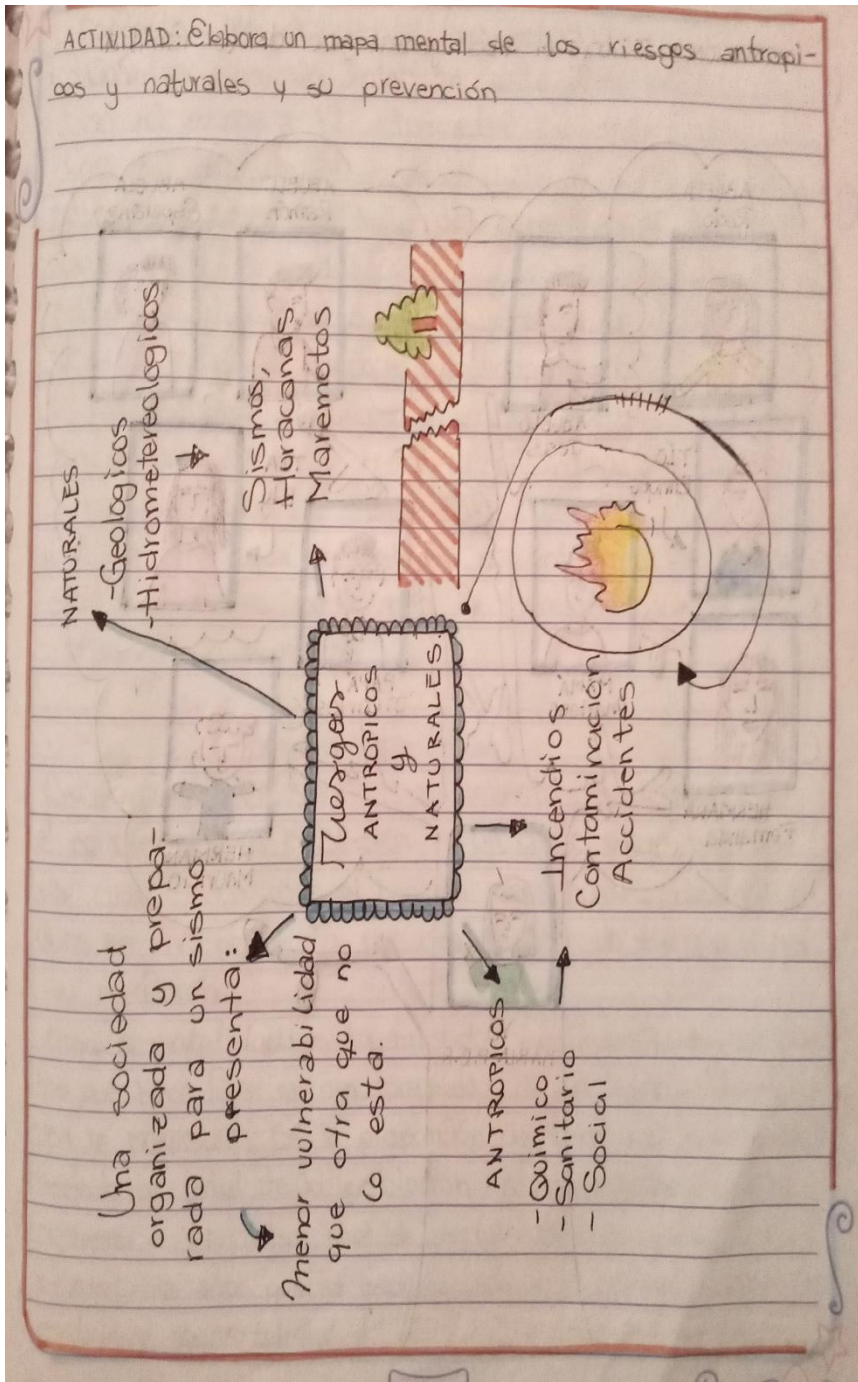 ACTIVIDAD: Elabora un mapa mental de los riesgos antropi-
cos y naturales y su prevención
NATURALES
-Geologicos
-Hidrometereologicos
Sismos,
Huracanas
Maremotos
Riesgos
ANTROPICOS
y
NATURALES.
Una sociedad
organizada y prepa-
rada para un sismo
presenta:
menor vulnerabilidad
que otra que no
lo esta.
ANTROPICOS
- Quimico
- Sanitario
- Social
Incendios
Contaminación
Accidentes